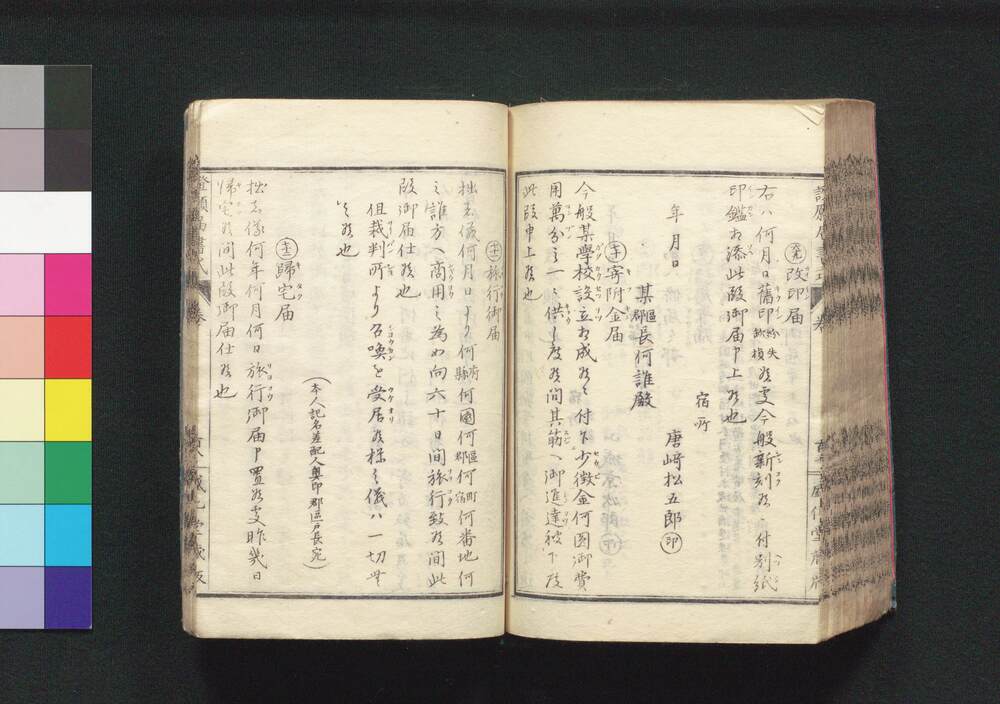 改印届
右ハ何月日舊印紛失欠損候処今般新刻候ニ付別紙
印鑑相添此段御届申上候也
宿所
年月日 唐﨑松五郎 印
某區郡長何誰殿
寄附金届
今般某學校設立相成候ニ付乍少徴金何圓御費
用萬分之一ニ供し度候間其筋へ御進達被下度
此段申上候也
旅行御届
拙者儀何月日より何府縣何國何區郡何町宿何番地何
之誰方へ商用之為め向六十日間旅行致候間此
段御届仕候也
但裁判所より召喚を受居候様之儀ハ一切無
之候也
(本人記名差配人奥印郡區戸長宛)
歸宅届
拙者儀何年何月何日旅行御届申置候処昨幾日
帰宅候間此段御届仕候也